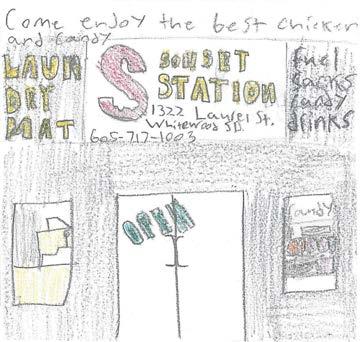 Come enjoy the best chicken
and candy
LAUN
DRY
MAT
S
SUNSET
STATION
1322 Laurel St.
Whitewood SD.
605-717-1003
fuel
savings
candy
drinks
OPEN
Candy